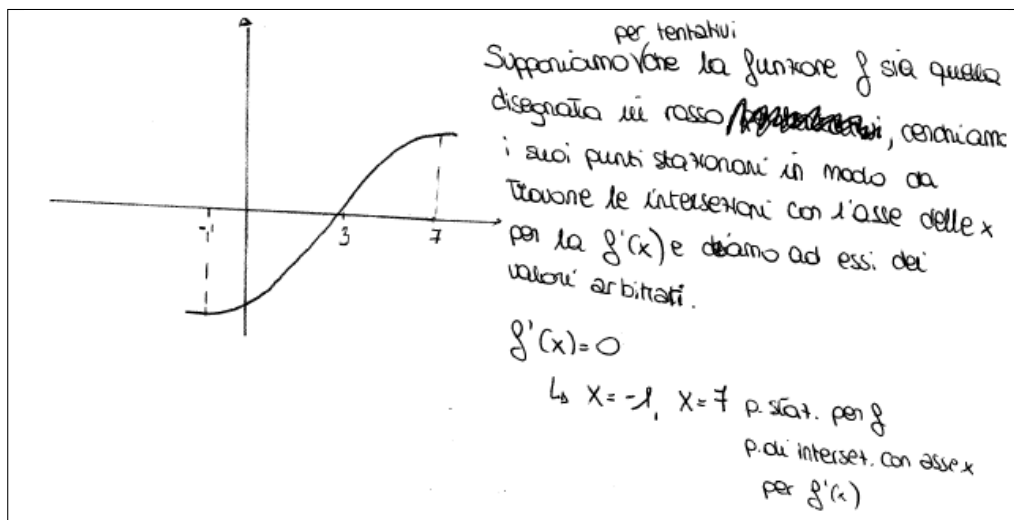 per tentativi
Supponiamo che la funzione f sia quella
disegnata in rosso, cerchiamo
i suoi punti stazionari in modo da
trovare le intersezioni con l'asse delle x
per la f'(x) e diamo ad essi dei
valori arbitrari.
f'(x)=0
↳ x=-1, x=7 p. staz. per f
p. di intersez. con asse x
per f'(x)
-1 3 7